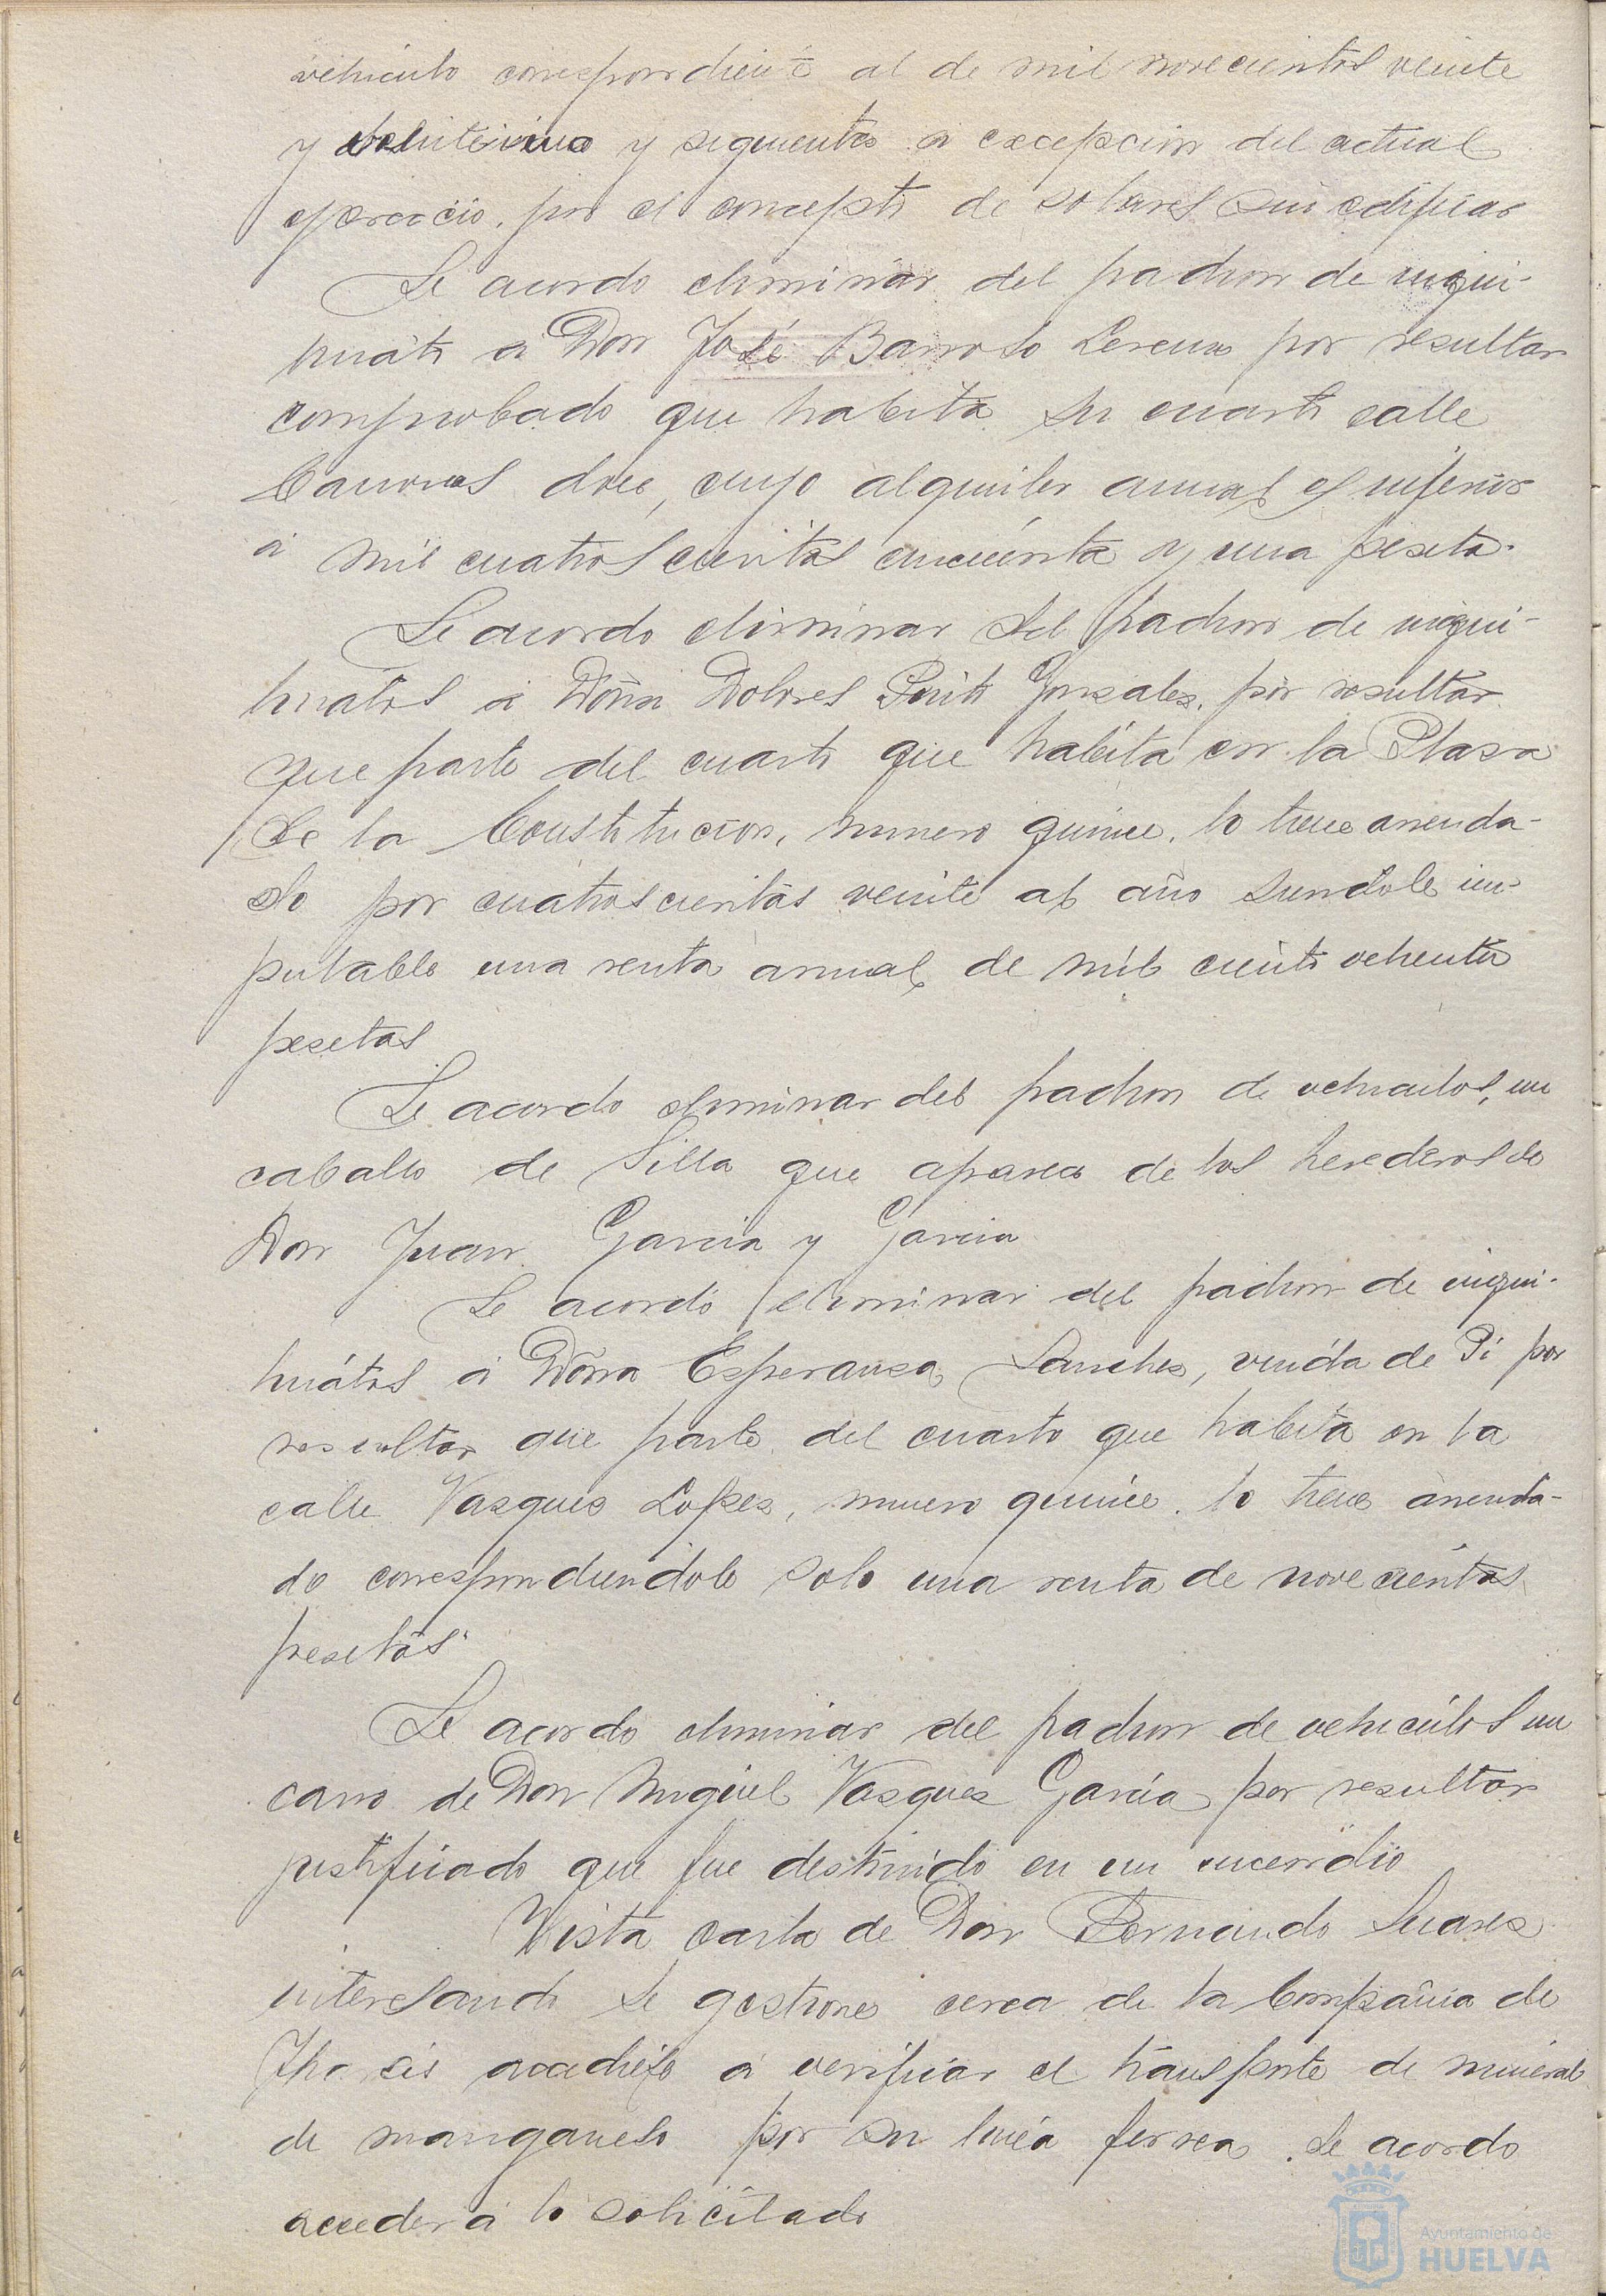 vehiculo correspondiente al de mil novecientos veinte
y veintiuno y siguientes a excepcion del actual
ejercicio, por el concepto de solares sin edificar
Se acordo eliminar del padron de inqui-
linato a Don José Barroso Lerena por resultar
comprobado que habita su cuarto calle
Canovas doce, cuyo alquiler anual es inferior
a mil cuatroscientas cincuenta y una peseta.
Se acordo eliminar del padron de inqui-
linatos a Doña Dolores Gonzalez, por resultar
que parte del cuarto que habita en la Plaza
de la Constitucion, numero quince, lo tiene arrenda-
do por cuatroscientas veinte al año siendole im-
putable una renta anual de mil ciento ochenta
pesetas
Se acordo eliminar del padron de vehiculos, un
caballo de Silla que aparece de los herederos de
Don Juan Garcia y Garcia
Se acordó eliminar del padron de inqui-
linátos a Doña Esperanza Sanchez, viuda de Pi por
resultar que parte del cuarto que habita en la
calle Vazquez Lopez, numero quince, lo tiene arrenda-
do correspondiendole solo una renta de novecientas
pesetas.
Se acordo eliminar del padron de vehiculos un
carro de Don Miguel Vazquez Garcia por resultar
justificado que fue destruido en un incendio
Vista carta de Don Fernando Suarez
interesando se gestione cerca de la Compañia de
Tharsis accediese a verificar el transporte de mineral
de manganeso por su linea ferrea. Se acordo
acceder a lo solicitado
Ayuntamiento de
HUELVA